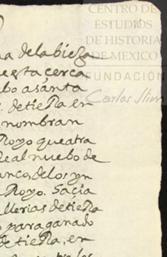 CENTRO DE
ESTUDIOS
DE HISTORIA
DE MEXICO
FUNDACIÓN
Carlos Slim
na dela bieJa
uesta cerca
bo asanta
s. de tieRa en
nombran
Royo queatra
Real nuebo de
anco, delos yn
Royo. Sacia
llerias de tieRa
para ganado
de tieRa, en